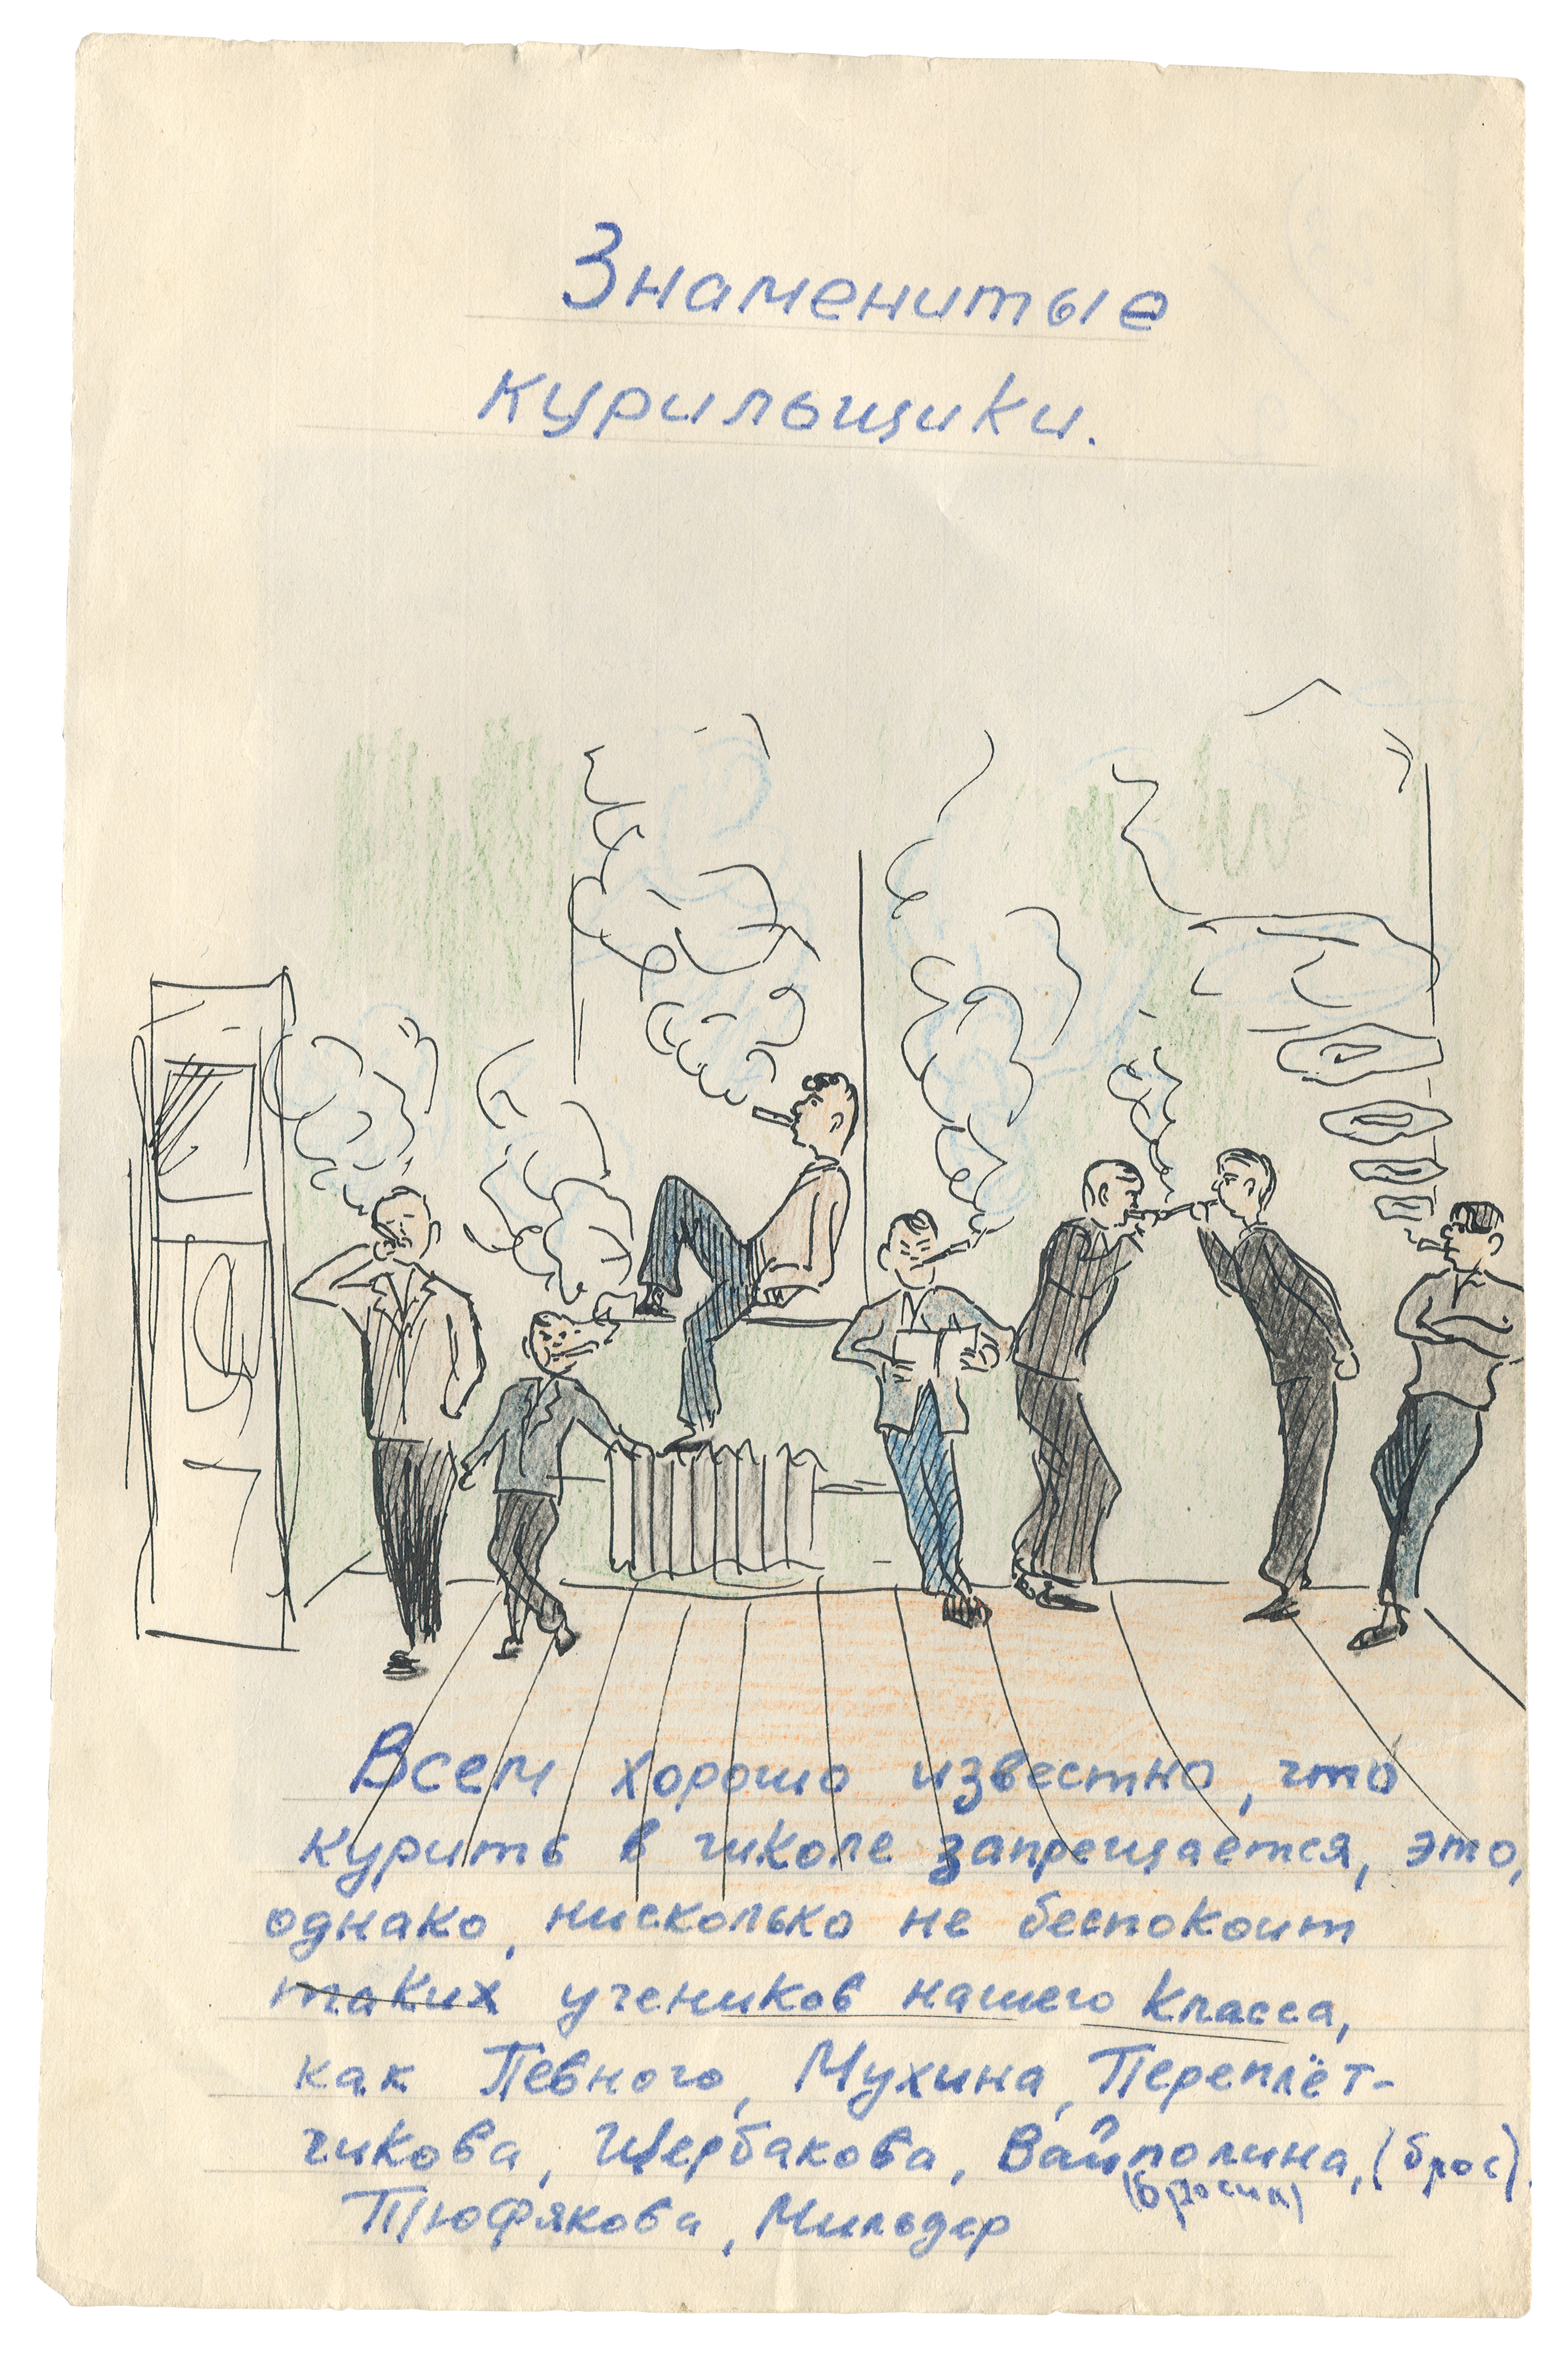 Знаменитые
курильщики.
Всем хорошо известно, что
курить в школе запрещается, это,
однако, нисколько не беспокоит
таких учеников нашего класса,
как Певного, Мухина, Переплёт-
чикова, Щербакова, Вайполина, (брос).
(бросил)
Тюфякова, Мильдер